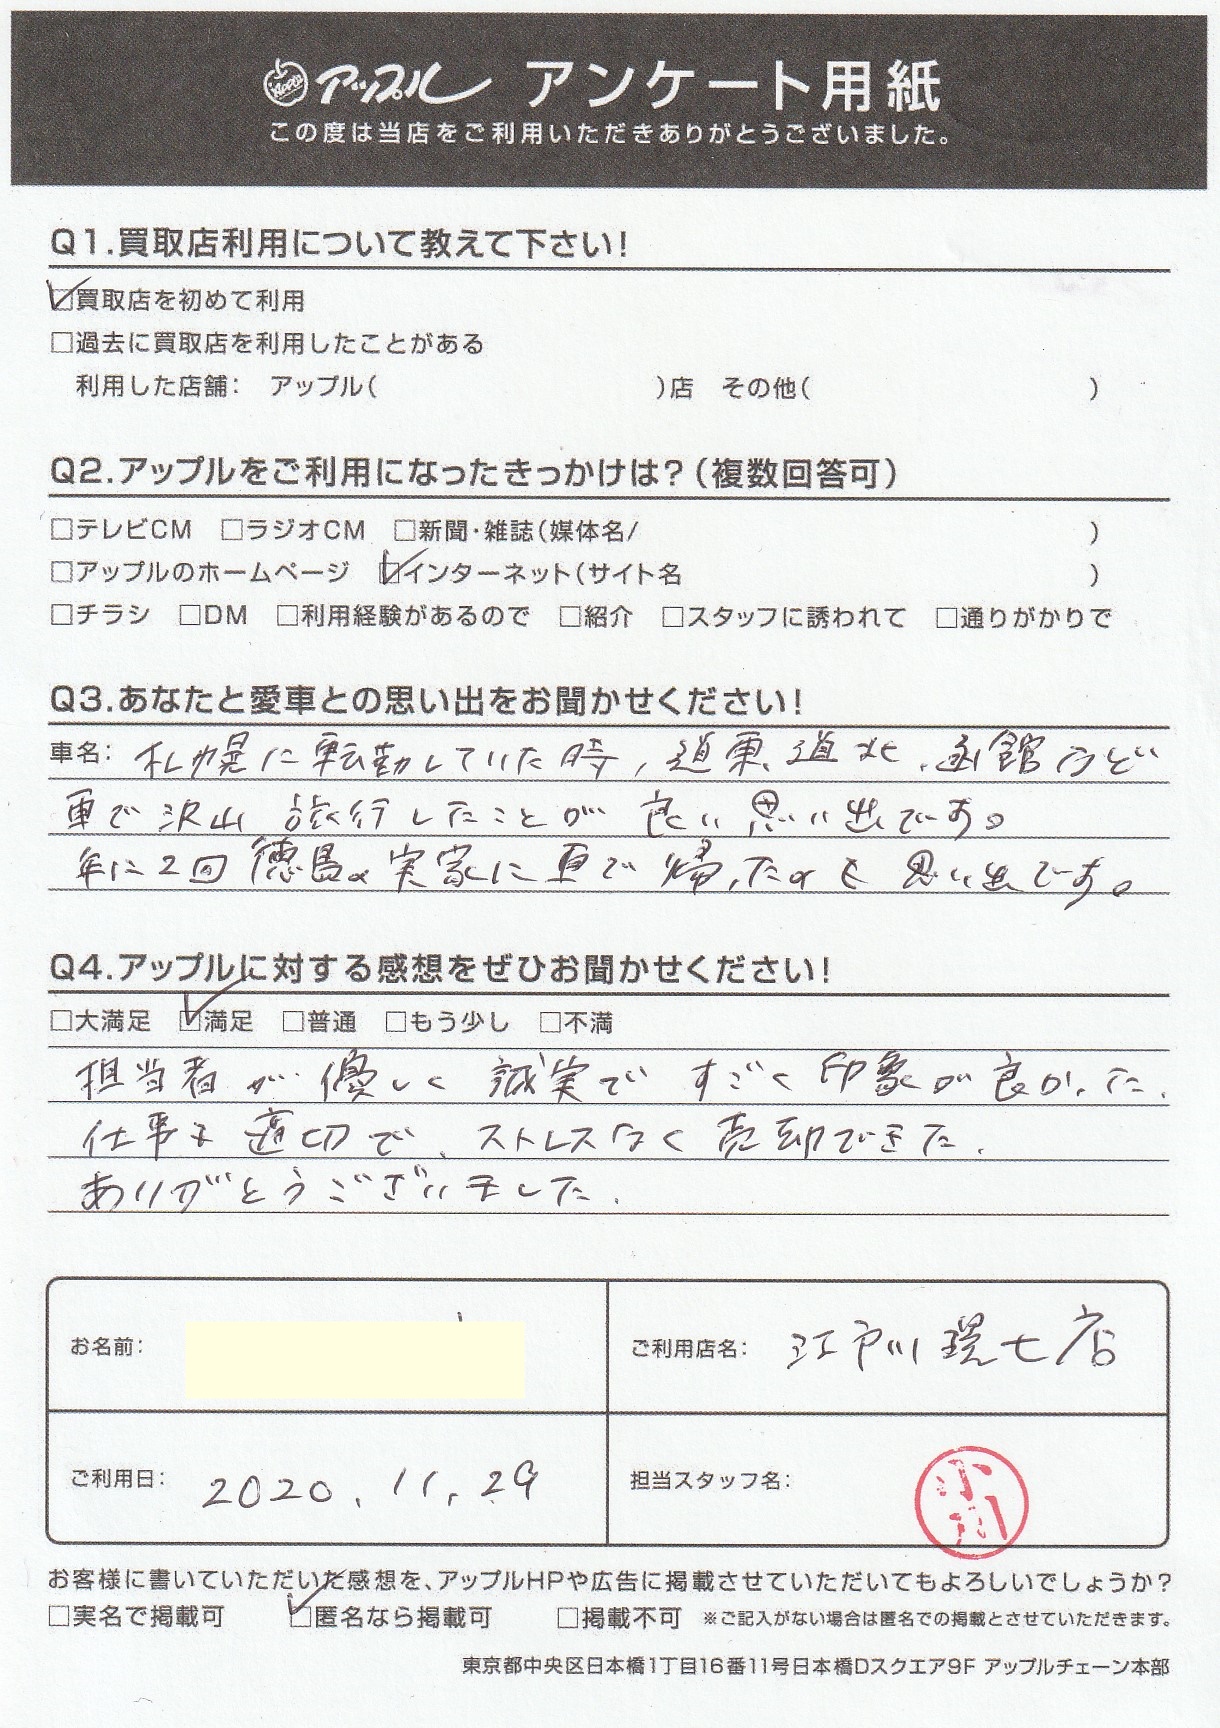 アップル アンケート用紙
この度は当店をご利用いただきありがとうございました。
Q1.買取店利用について教えて下さい!
☑買取店を初めて利用
□過去に買取店を利用したことがある
利用した店舗: アップル( )店 その他( )
Q2.アップルをご利用になったきっかけは?(複数回答可)
□テレビCM □ラジオCM □新聞・雑誌(媒体名/ )
□アップルのホームページ ☑インターネット(サイト名 )
□チラシ □DM □利用経験があるので □紹介 □スタッフに誘われて □通りがかりで
Q3.あなたと愛車との思い出をお聞かせください!
車名: 札幌に転勤していた時、道東、道北、函館など
車で沢山 旅行したことが 良い思い出です。
年に2回 徳島の実家に車で帰ったのも思い出です。
Q4.アップルに対する感想をぜひお聞かせください!
□大満足 ☑満足 □普通 □もう少し □不満
担当者が優しく 誠実で すごく印象が良かった.
仕事も適切で、ストレスなく売却できた.
ありがとうございました.
お名前:
ご利用店名: 江戸川環七店
ご利用日: 2020.11.29
担当スタッフ名: 小
お客様に書いていただいた感想を、アップルHPや広告に掲載させていただいてもよろしいでしょうか?
□実名で掲載可 ☑匿名なら掲載可 □掲載不可 ※ご記入がない場合は匿名での掲載とさせていただきます。
東京都中央区日本橋1丁目16番11号日本橋Dスクエア9F アップルチェーン本部